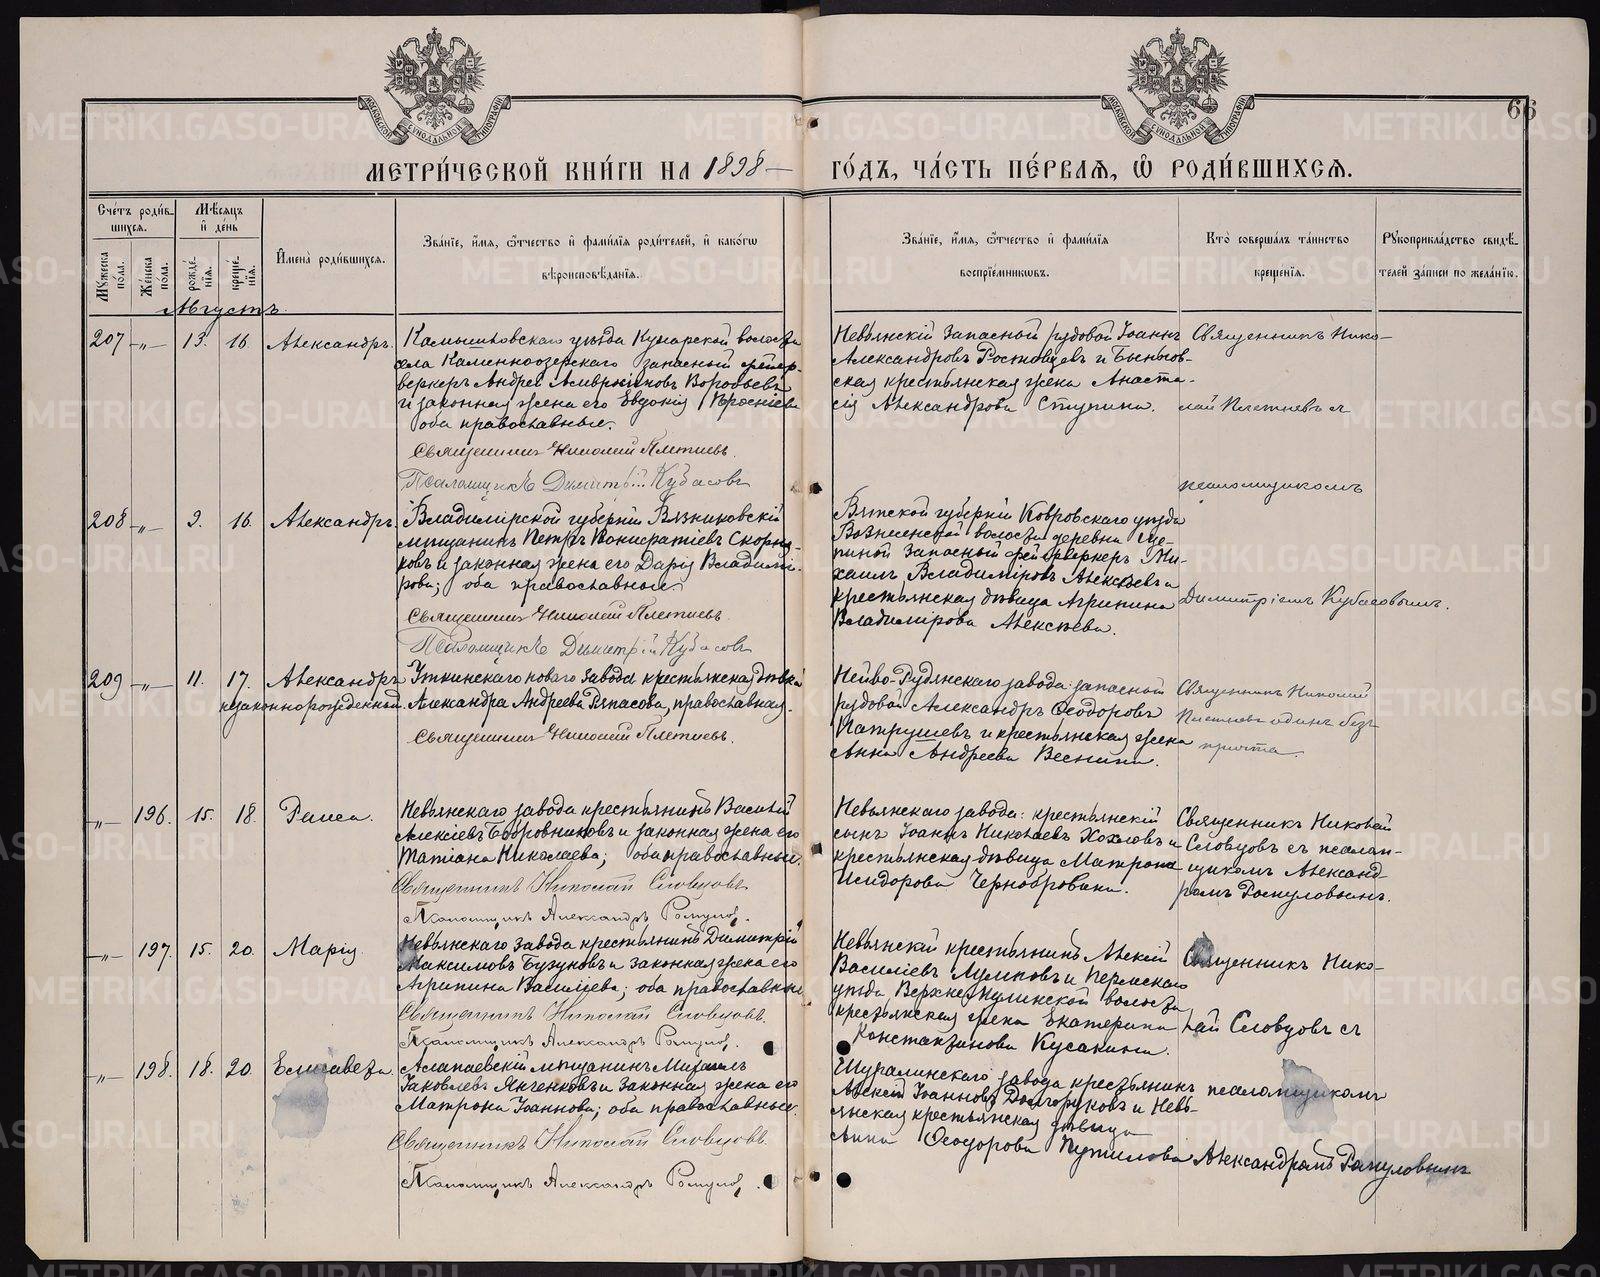 66
МЕТРИ́ЧЕСКОЙ КНИ́ГИ НА 1898 ГО́ДЪ, ЧА́СТЬ ПЕ́РВАѦ, Ѿ РОДИ́ВШИХСѦ.
Сче́тъ роди́в-
шихсѧ.
Мꙋжеска по́ла.
Же́нска по́ла.
Мѣ́сѧцъ и҆ де́нь
рожде́-
нїѧ.
креще́-
нїѧ.
И҆мена̀ роди́вшихсѧ.
Зва́нїе, и҆́мѧ, ѻ҆́тчество и҆ фами́лїѧ роди́телей, и҆ како́гѡ
вѣроисповѣ́данїѧ.
Зва́нїе, и҆́мѧ, ѻ҆́тчество и҆ фами́лїѧ
воспрїе́мникѡвъ.
Кто̀ соверша́лъ та́инство
креще́нїѧ.
Рꙋкоприкла́дство свидѣ́-
телей за́писи по жела́нїю.
Августъ
207 -„- 13. 16. Александръ.
Камышловскаго уѣзда Кунарской волости
села Каменноозерскаго запасный фейер-
веркеръ Андрей Амвросіевъ Воробьевъ
и законная жена его Евдокія
оба православные.
Священникъ Николай Плетневъ.
Псаломщикъ Димитрій Кубасовъ
Невьянскій запасной рядовой Іоаннъ
Александровъ Ростовцевъ и Быньгов-
ская крестьянская жена Анаста-
сія Александрова Ступина.
Священникъ Нико-
лай Плетневъ съ
псаломщикомъ
208 -„- 9. 16. Александръ.
Владимірской губерніи Вязниковскій
мѣщанинъ Петръ Панкратіевъ Скорня-
ковъ и законная жена его Дарія Владимі-
рова; оба православные.
Священникъ Николай Плетневъ.
Псаломщикъ Димитрій Кубасовъ
Вятской губерніи Ковровскаго уѣзда
Вознесенской волости деревни
запасный фейерверкеръ Ми-
хаилъ Владиміровъ Алексѣевъ и
крестьянская дѣвица Агрипина
Владимірова Алексѣева.
Димитріемъ Кубасовымъ.
209 -„- 11. 17. Александръ
незаконнорожденный.
Уткинскаго новаго завода крестьянская дѣвка
Александра Андреева Ряпасова, православная.
Священникъ Николай Плетневъ.
Нейво-Рудянскаго завода запасной
рядовой Александръ Ѳеодоровъ
Патрушевъ и крестьянская жена
Анна Андреева Веснина.
Священникъ Николай
Плетневъ одинъ безъ
причта.
-„- 196. 15. 18. Раиса.
Невьянскаго завода крестьянинъ Василій
Алексіевъ Бобровниковъ и законная жена его
Татіана Николаева; оба православные.
Священникъ Николай Словцовъ
Псаломщикъ Александръ Ромулов.
Невьянскаго завода: крестьянскій
сынъ Іоаннъ Николаевъ Хохловъ и
крестьянская дѣвица Матрона
Исидорова Чернобровкина.
Священникъ Николай
Словцовъ съ псалом-
щикомъ Александ-
ромъ Ромуловымъ.
-„- 197. 15. 20. Марія.
Невьянскаго завода крестьянинъ Димитрій
Максимовъ Бузуновъ и законная жена его
Агрипина Васильева; оба православные.
Священникъ Николай Словцовъ.
Псаломщикъ Александръ Ромулов.
Невьянскій крестьянинъ Алексій
Василіевъ и Пермскаго
уѣзда Верхне-Мулинской волости
крестьянская жена Екатерина
Константинова Кусакина.
Священникъ Нико-
лай Словцовъ съ
-„- 198. 18. 20. Елисавета.
Алапаевскій мѣщанинъ Михаилъ
Іаковлевъ Янченковъ и законная жена его
Матрона Іоаннова; оба православные.
Священникъ Николай Словцовъ.
Псаломщикъ Александръ Ромулов.
Шуралинскаго завода крестьянинъ
Алексій Іоанновъ Долгоруковъ и Невь-
янская крестьянская дѣвица
Анна Ѳеодорова Путилова
псаломщикомъ
Александромъ Ромуловымъ